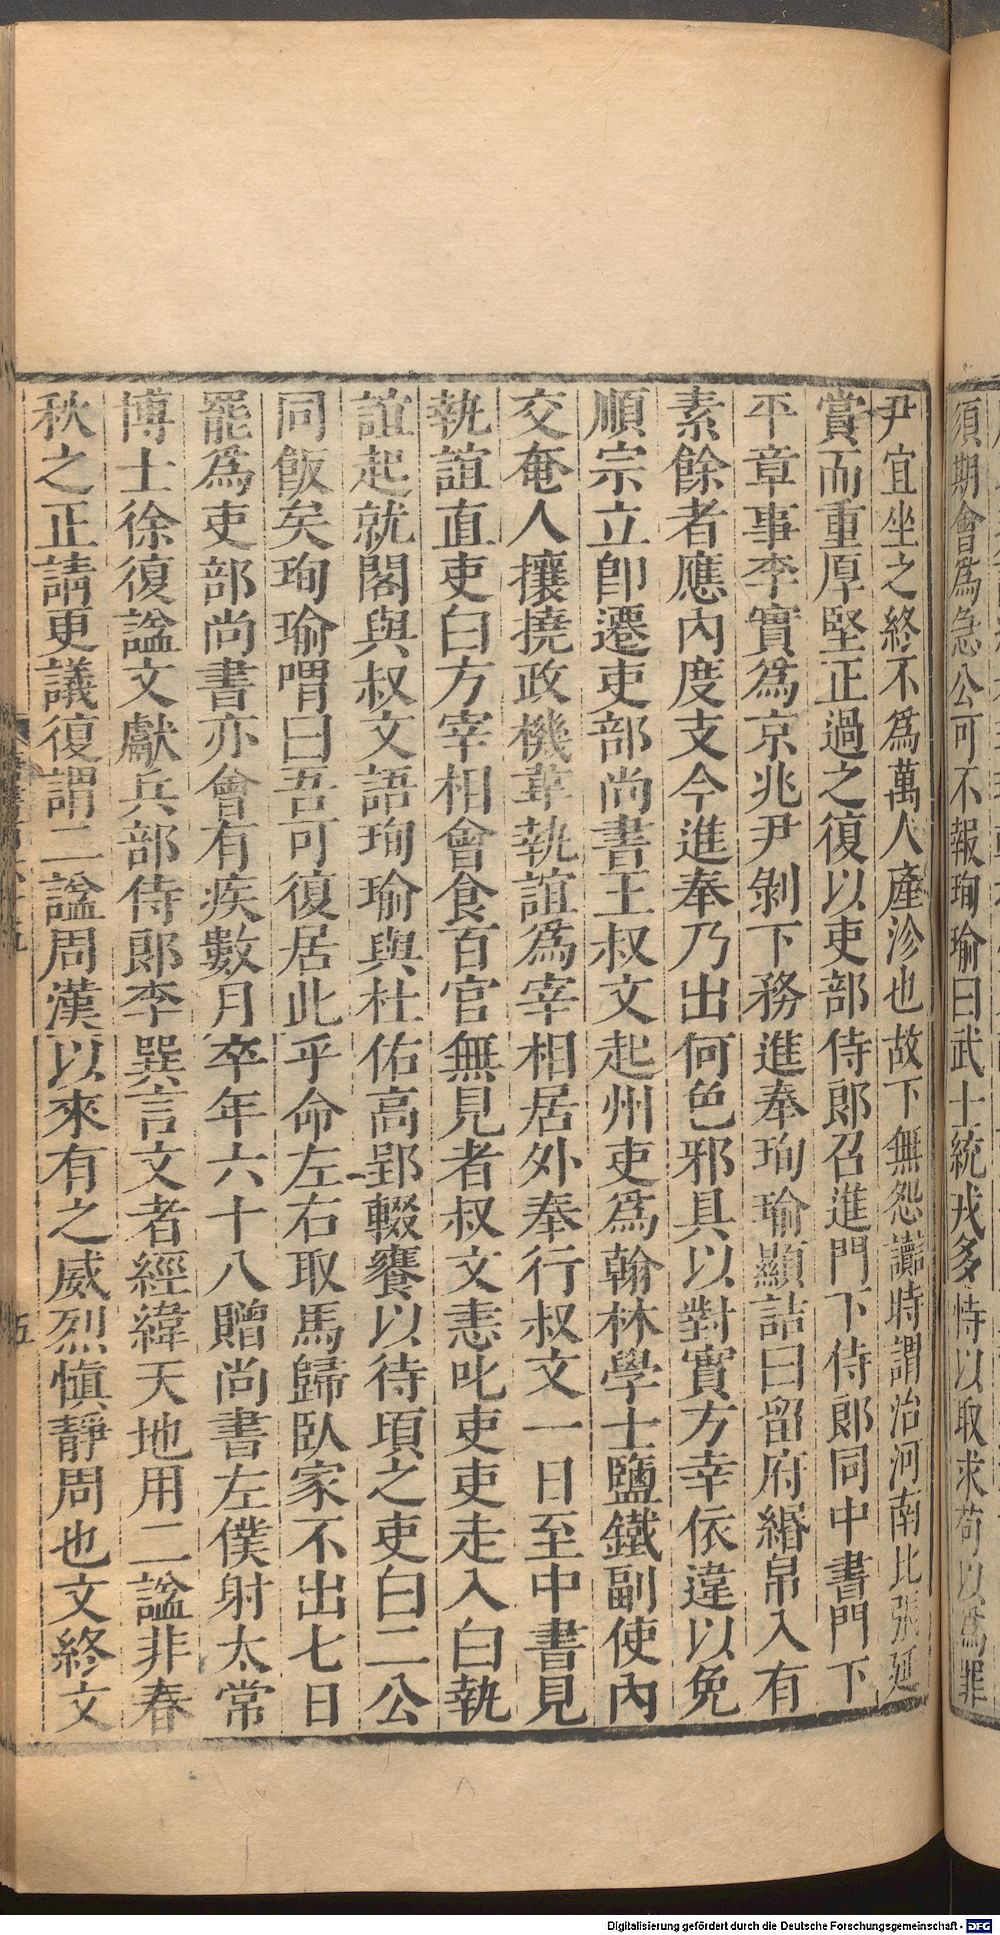 須期會爲急公可不報珣瑜曰武士統戎多恃以取求苟以爲罪
尹宜坐之終不爲萬人產沴也故下無怨讟時謂治河南比張延
賞而重厚堅正過之復以吏部侍郎召進門下侍郎同中書門下
平章事李實爲京兆尹剝下務進奉珣瑜顯詰曰留府緡帛入有
素餘者應內度支今進奉乃出何色邪具以對實方幸依違以免
順宗立即遷吏部尚書王叔文起州吏爲翰林學士鹽鐵副使內
交奄人攘撓政機韋執誼爲宰相居外奉行叔文一日至中書見
執誼直吏白方宰相會食百官無見者叔文恚叱吏吏走入白執
誼起就閣與叔文語珣瑜與杜佑高郢輟饔以待頃之吏白二公
同飯矣珣瑜喟曰吾可復居此乎命左右取馬歸臥家不出七日
罷爲吏部尚書亦會有疾數月卒年六十八贈尚書左僕射太常
博士徐復諡文獻兵部侍郎李巽言文者經緯天地用二諡非春
秋之正請更議復謂二諡周漢以來有之威烈愼靜周也文終文
五
Digitalisierung gefördert durch die Deutsche Forschungsgemeinschaft - DFG